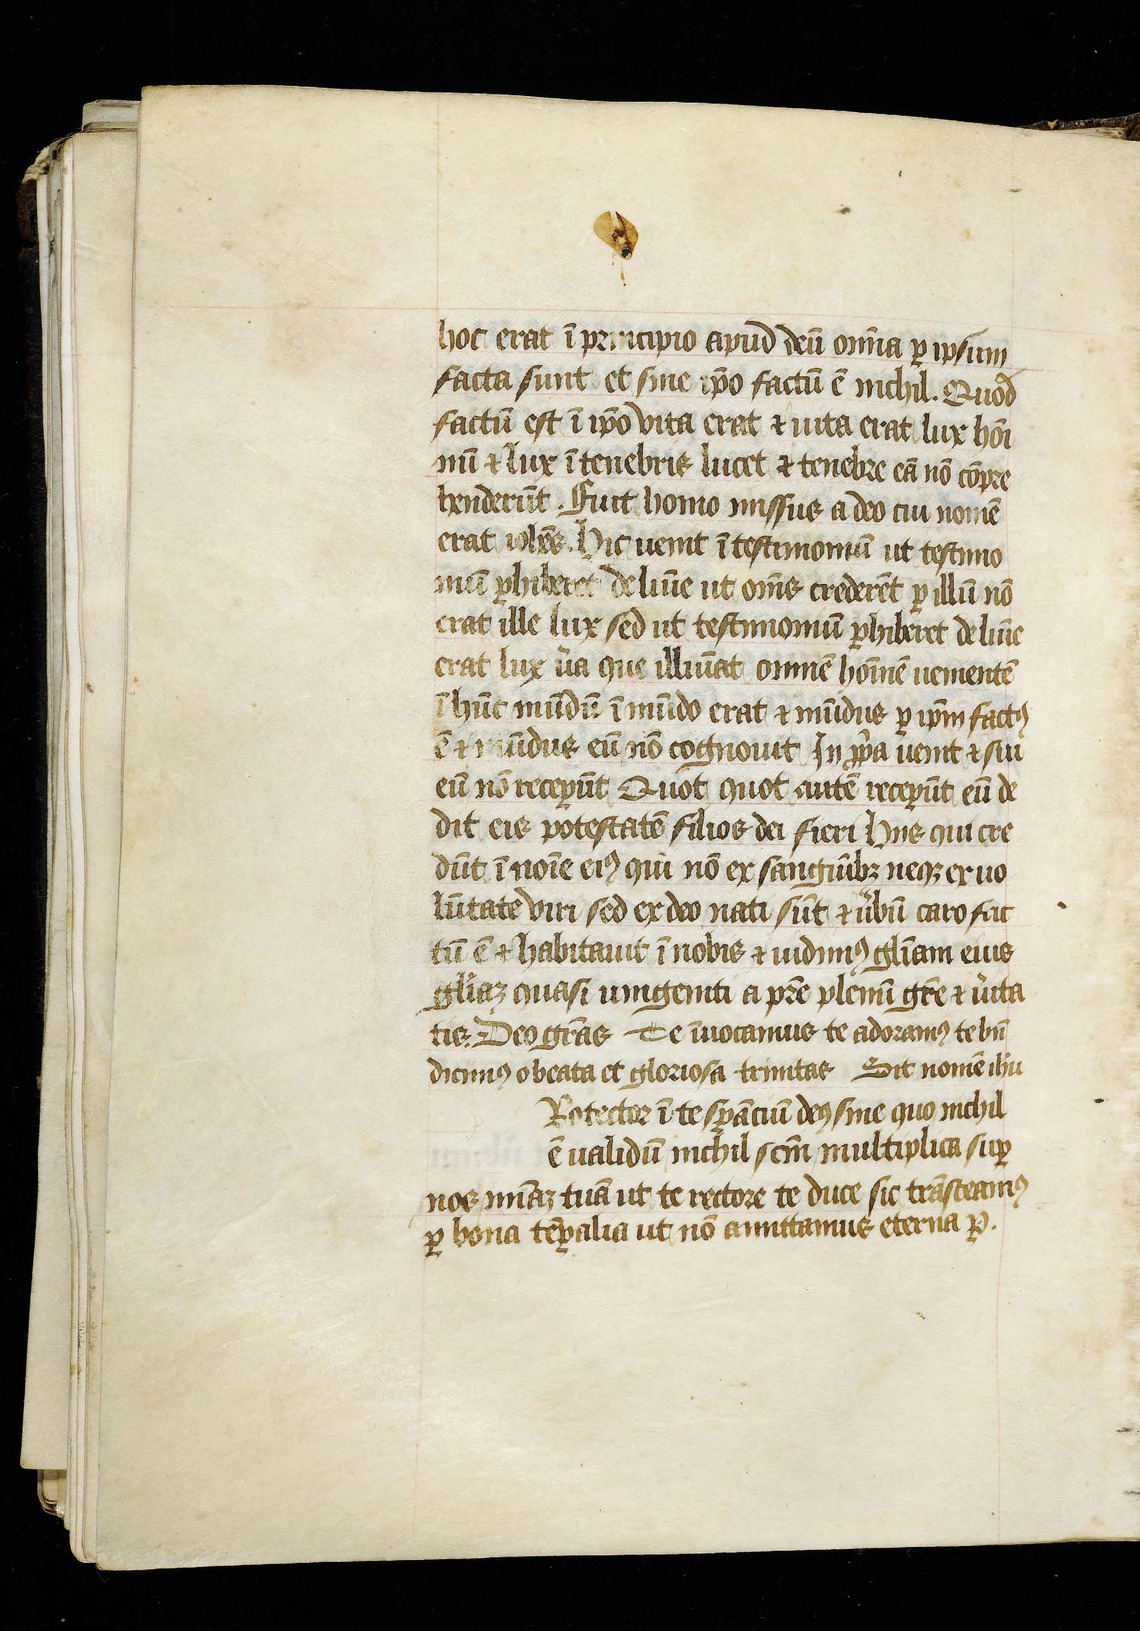 hoc erat ī principio apud deū om̄ia ꝑ ipsum
facta sunt et sine ip̄o factū ē nichil. Quod
factū est ī ip̄o vita erat ⁊ uita erat lux hōi
nū ⁊ lux ī tenebris lucet ⁊ tenebre eā nō cōpre
henderūt. Fuit homo missus a deo cui nomē
erat ioh̄es. Hic uenit ī testimoniū ut testimo
niū ꝑhiberet de lūīe ut om̄s crederēt ꝑ illū nō
erat ille lux sed ut testimoniū ꝑhiberet de lūīe
erat lux ūa que illūīat omnē hom̄ē uenientē
ī hūc mūdū ī mūdo erat ⁊ mūdus ꝑ ip̄m factꝰ
ē ⁊ mūdus eū nō cognouit In ꝓp̄a uenit ⁊ sui
eū nō receꝑūt Quot quot autē receꝑūt eū de
dit eis potestatē filios dei fieri Hiis qui cre
dūt ī noīe eiꝰ qui nō ex sanguīibꝫ neqꝫ ex uo
lūtate viri sed ex deo nati sūt ⁊ ūbū caro fac
tū ē ⁊ habitauit ī nobis ⁊ uidimꝰ gl̄iam eius
gl̄iaꝫ quasi unigeniti a pr̄e plenū gr̄e ⁊ ūita
tis. Deo gr̄as Te īuocamus te adoramꝰ te bn̄
dicimꝰ o beata et gloriosa trinitas Sit nomē ih̄u
Rotector ī te sꝑāciū deꝰ sine quo nichil
ē ualidū nichil sc̄m multiplica suꝑ
nos mīaꝫ tuā ut te rectore te duce sic trāseamꝰ
ꝑ bona tēꝑalia ut nō amittamus eterna ꝑ.